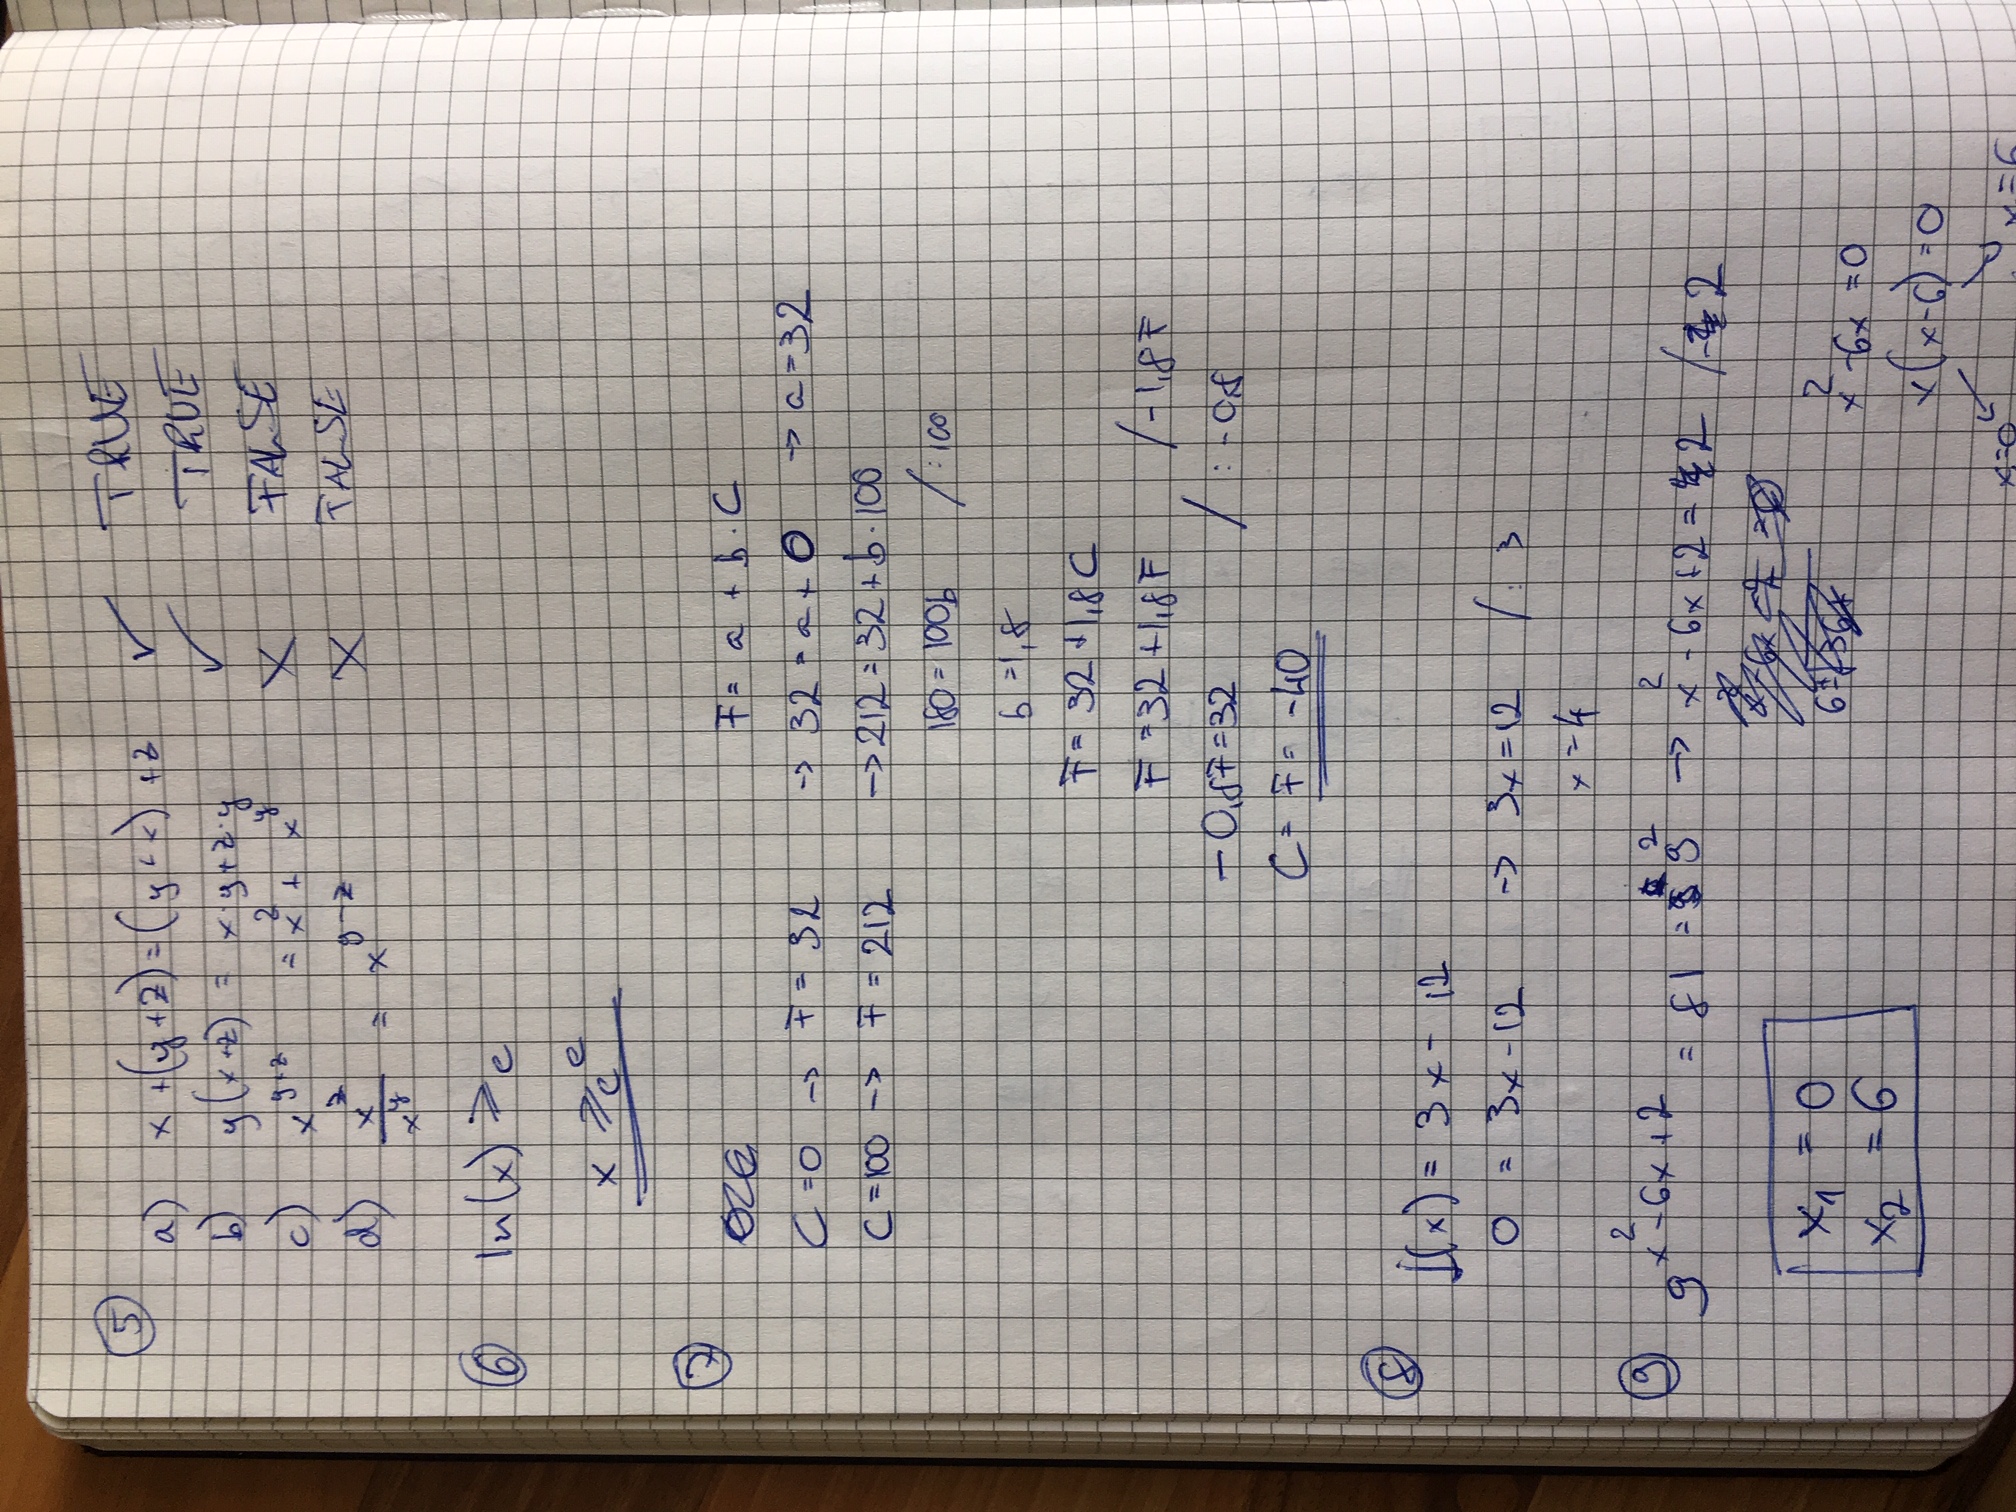 5
a) x + (y+z) = (y+x) + z ✓ TRUE
b) y(x+z) = x·y+z·y ✓ TRUE
c) x^{y+z} = x^z + x^y X FALSE
d) \frac{x^z}{x^y} = x^{y-z} X FALSE
6 ln(x) ≥ e
x ≥ e^e
7
F = a + b·C
C=0 -> F = 32 -> 32 = a + 0 -> a=32
C=100 -> F = 212 -> 212 = 32 + b·100
180 = 100b /:100
b = 1,8
F = 32 + 1,8C
F = 32 + 1,8F /-1,8F
-0,8F = 32 / :-0,8
C = F = -40
8
f(x) = 3x - 12
0 = 3x - 12 -> 3x = 12 /: 3
x = 4
9 9^{x^2-6x+2} = 81 = 9^2 -> x^2 - 6x + 2 = 2 /-2
x^2 - 6x = 0
x(x-6) = 0
x=0 x=6
x_1 = 0
x_2 = 6